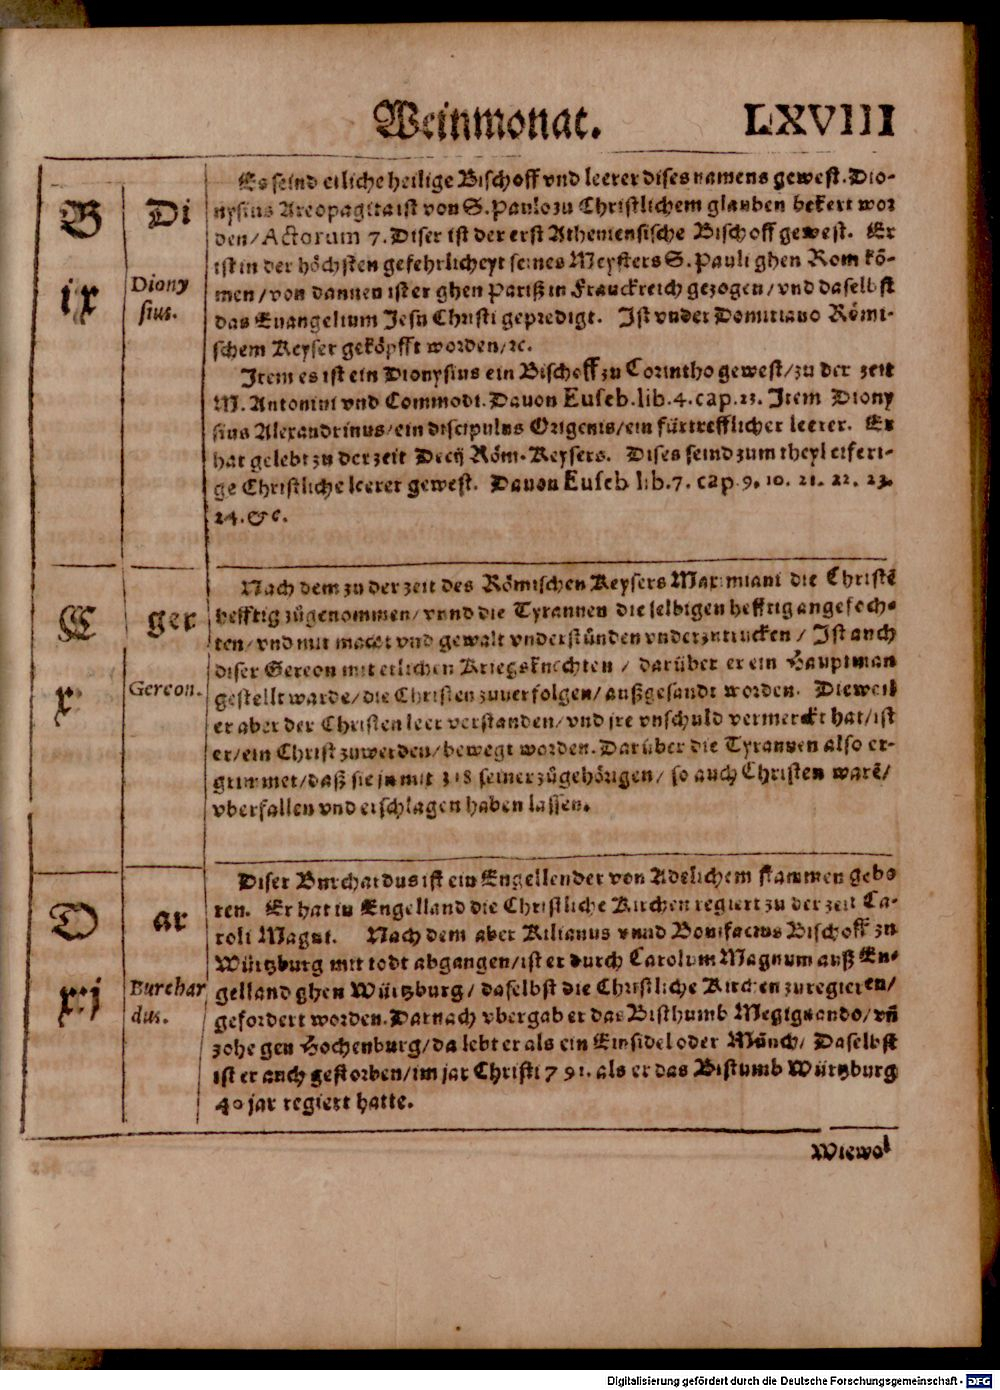 Weinmonat. LXVIII
B Di
ix Diony
sius.
Es seind etliche heilige Bischoff vnd leerer dises namens gewest. Dio-
nysius Areopagita ist von S. Paulo zu Christlichem glauben bekert wor
den/ Actorum 7. Diser ist der erst Atheniensische Bischoff gewest. Er
ist in der höchsten gefehrlicheyt seines Meysters S. Pauli ghen Rom kõ-
men/ von dannen ist er ghen Pariß in Franckreich gezogen/ vnd daselbst
das Euangelium Jesu Christi gepredigt. Ist vnder Domitiano Römi-
schem Keyser geköpfft worden/ ꝛc.
Item es ist ein Dionysius ein Bischoff zu Corintho gewest/ zu der zeit
M. Antonini vnd Commodi. Dauon Euseb. lib. 4. cap. 23. Item Diony
sius Alexandrinus/ ein discipulus Origenis/ ein fürtrefflicher leerer. Er
hat gelebt zu der zeit Decij Röm. Keysers. Dises seind zum theyl eiferi-
ge Christliche leerer gewest. Dauon Euseb lib. 7. cap. 9. 10. 21. 22. 23.
24. &c.
C ger
x Gereon.
Nach dem zu der zeit des Römischen Keysers Maximiani die Christẽ
hefftig zůgenommen/ vnnd die Tyrannen die selbigen hefftig angefoch-
ten/ vnd mit macht vnd gewalt vnderstůnden vnderzutrucken/ Ist auch
diser Gereon mit etlichen Kriegsknechten/ darüber er ein Hauptman
gestellt warde/ die Christen zuuerfolgen/ außgesandt worden. Dieweil
er aber der Christen leer verstanden/ vnd jre vnschuld vermerckt hat/ ist
er/ ein Christ zuwerden/ bewegt worden. Darüber die Tyrannen also er-
grimmet/ daß sie jn mit 318 seiner zůgehörigen/ so auch Christen warẽ/
vberfallen vnd erschlagen haben lassen.
D ar
xj Burchar
dus.
Diser Burchardus ist ein Engellender von Adelichem stammen gebo
ren. Er hat in Engelland die Christliche Kirchen regiert zu der zeit Ca-
roli Magni. Nach dem aber Kilianus vnnd Bonifacius Bischoff zu
Würtzburg mit todt abgangen/ ist er durch Carolum Magnum auß En-
gelland ghen Würtzburg/ daselbst die Christliche Kirchen zuregieren/
gefordert worden. Darnach vbergab er das Bisthumb Megignando/ vñ
zohe gen Hochenburg/ da lebt er als ein Einsidel oder Münch/ Daselbst
ist er auch gestorben/ im jar Christi 791. als er das Bistumb Würtzburg
40 jar regiert hatte.
Wiewol
Digitalisierung gefördert durch die Deutsche Forschungsgemeinschaft - DFG